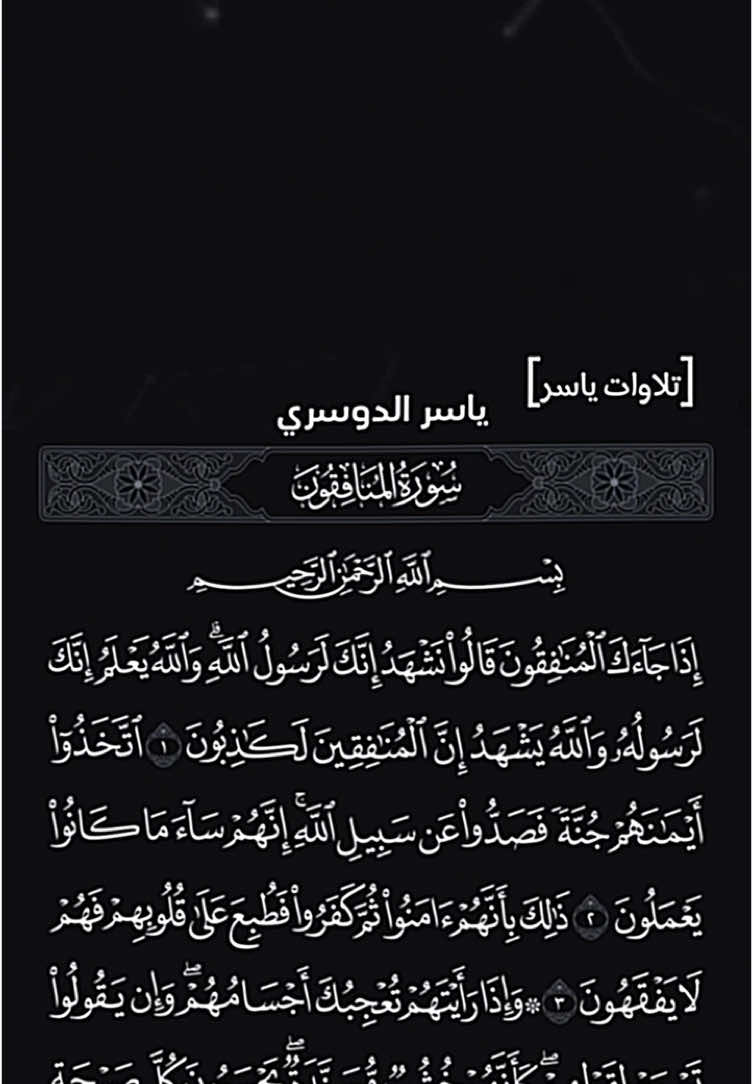 [تلاوات ياسر]
ياسر الدوسري
سُورَةُ المُنَافِقُونَ
بِسْمِ ٱللَّهِ ٱلرَّحْمَٰنِ ٱلرَّحِيمِ
إِذَا جَآءَكَ ٱلْمُنَٰفِقُونَ قَالُوا۟ نَشْهَدُ إِنَّكَ لَرَسُولُ ٱللَّهِۗ وَٱللَّهُ يَعْلَمُ إِنَّكَ
لَرَسُولُهُۥ وَٱللَّهُ يَشْهَدُ إِنَّ ٱلْمُنَٰفِقِينَ لَكَٰذِبُونَ ١ ٱتَّخَذُوٓا۟
أَيْمَٰنَهُمْ جُنَّةً فَصَدُّوا۟ عَن سَبِيلِ ٱللَّهِۚ إِنَّهُمْ سَآءَ مَا كَانُوا۟
يَعْمَلُونَ ٢ ذَٰلِكَ بِأَنَّهُمْ ءَامَنُوا۟ ثُمَّ كَفَرُوا۟ فَطُبِعَ عَلَىٰ قُلُوبِهِمْ فَهُمْ
لَا يَفْقَهُونَ ٣ ۞ وَإِذَا رَأَيْتَهُمْ تُعْجِبُكَ أَجْسَامُهُمْۖ وَإِن يَقُولُوا۟